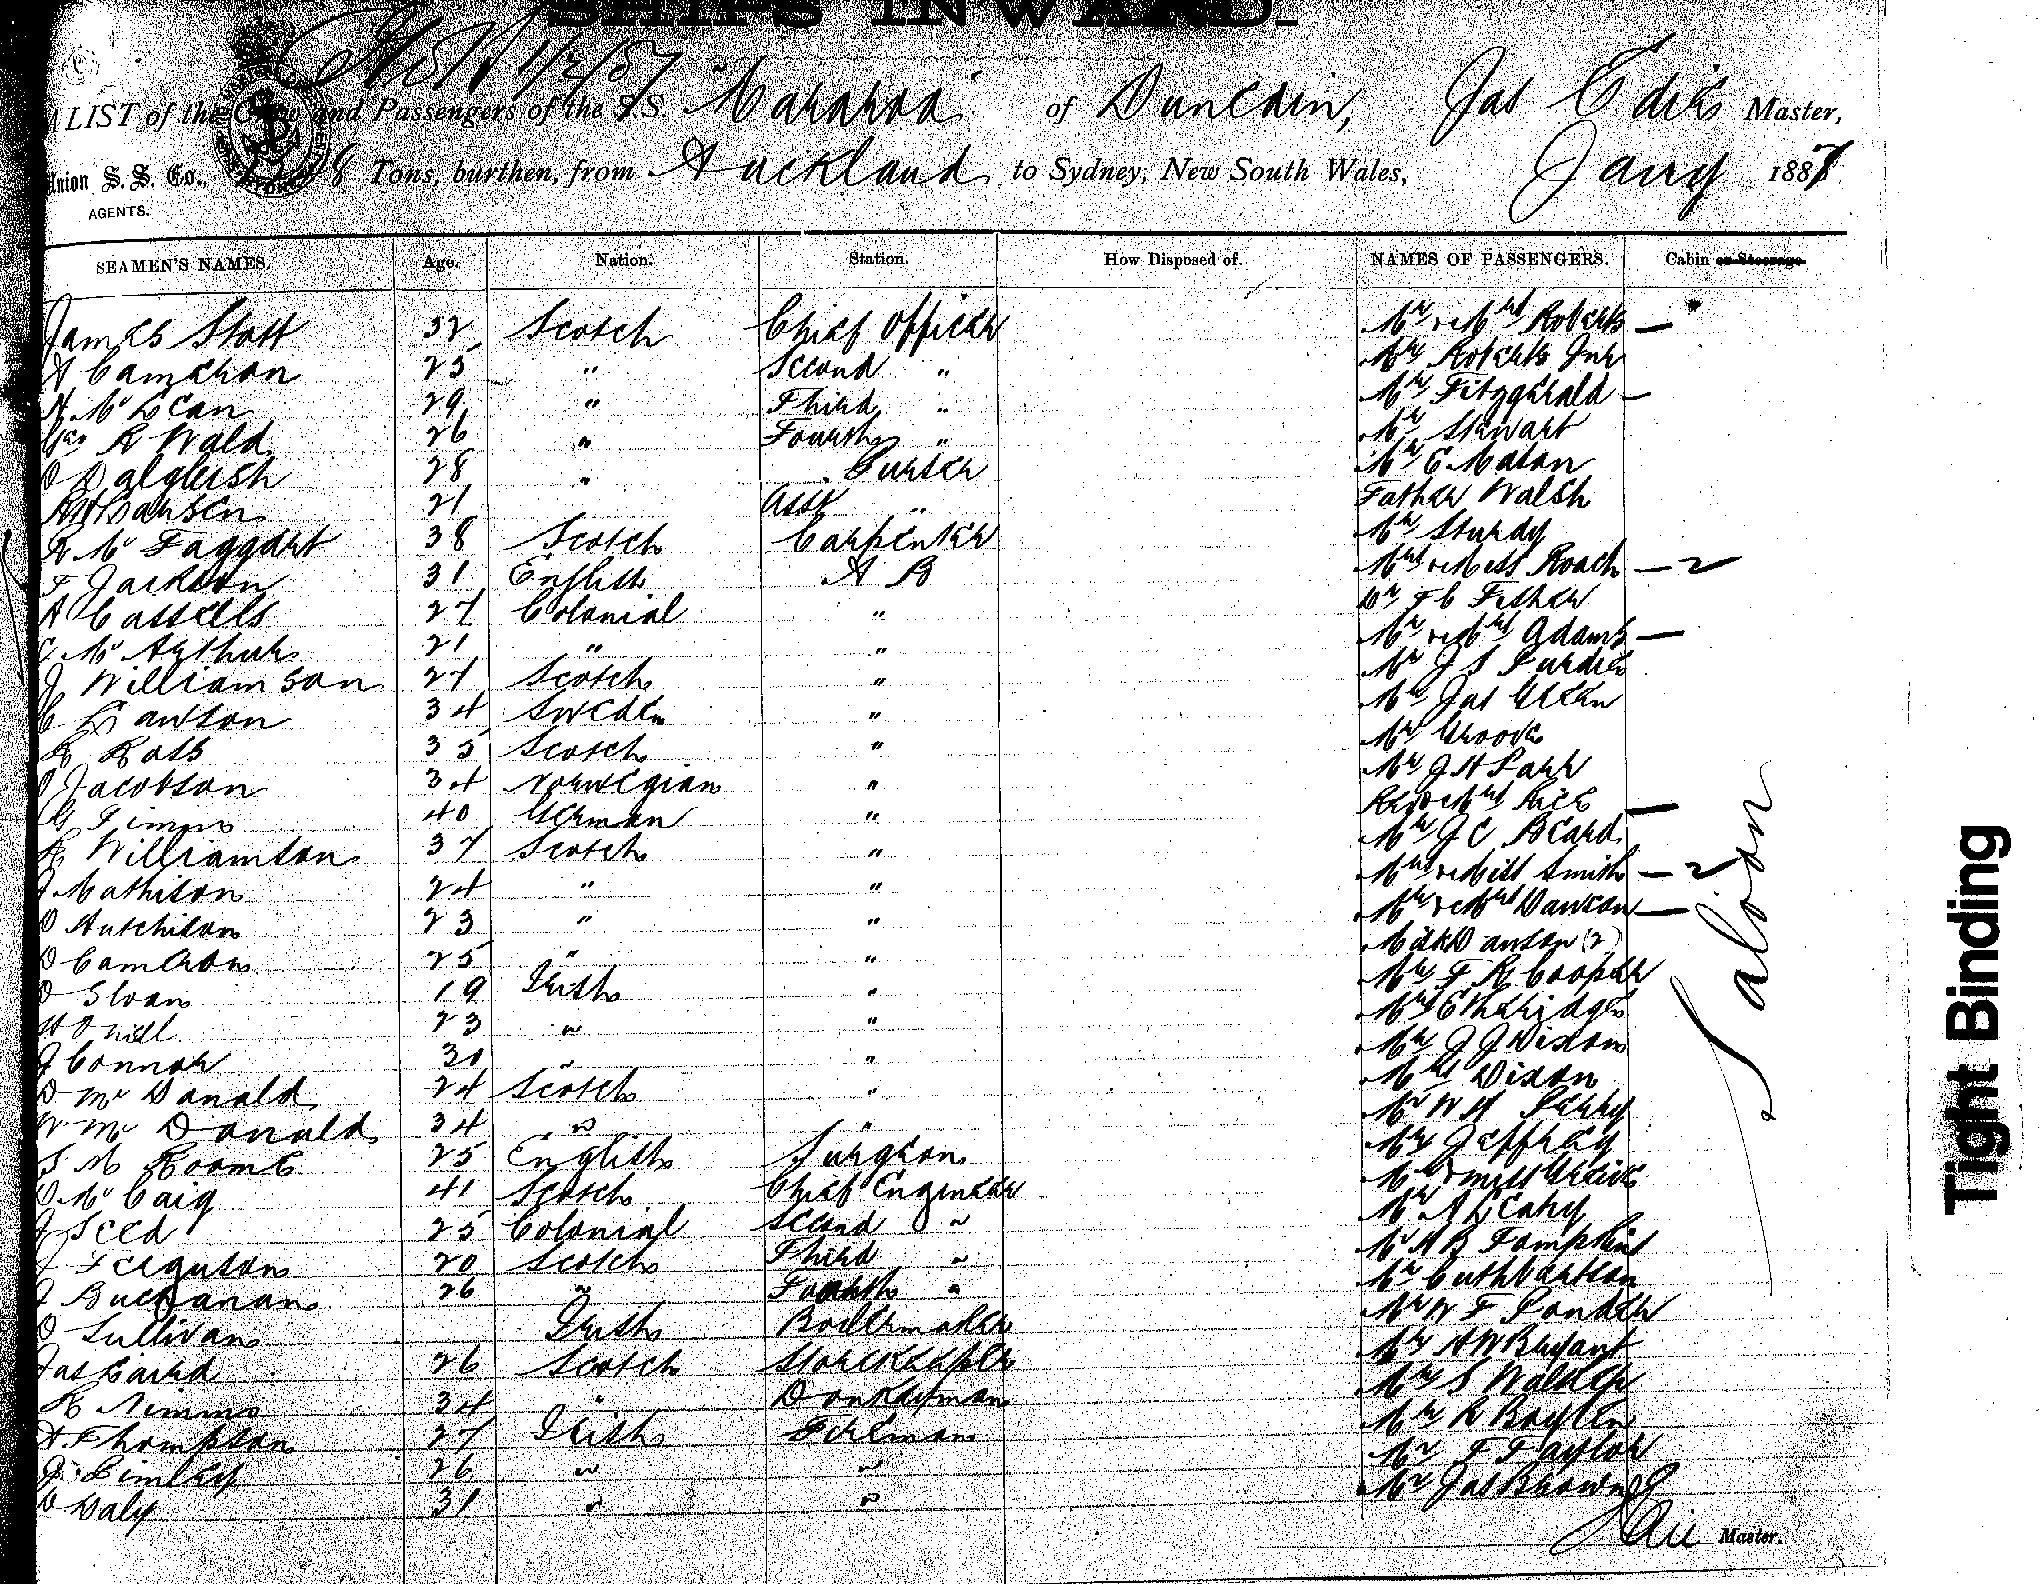 SHIPS INWARD.
A LIST of the Crew and Passengers of the S.S. Mararoa of Dunedin, Jas Edie Master,
Union S. S. Co., AGENTS. 8 Tons, burthen, from Auckland to Sydney, New South Wales, Jany 1887
SEAMEN'S NAMES. Age. Nation. Station. How Disposed of. NAMES OF PASSENGERS. Cabin or Steerage
James Stott 32 Scotch Chief Officer Mr & Mrs Roberts —
A Cameron 25 " Second " Mr Roberts Jnr
McLean 29 " Third " Mr Fitzgerald —
R Wald 26 " Fourth " Mr Stewart
D Dalgleish 28 " Purser Mr E Mason
21 Asst " Father Walsh
R McTaggart 38 Scotch Carpenter Mr Sturdy
F Jackson 31 English A B Mrs & Miss Roach — 2
A Cassells 27 Colonial " Mr F C Fisher
C McArthur 21 " " Mr & Mrs Adams —
J Williamson 27 Scotch " Mr J S Purdie
C Lawson 34 Sweden " Mr Jas Green
R Ross 35 Scotch " Mr Groove
Jacobson 34 Norwegian " Mr J H Parr
G Timms 40 German " Rev & Mrs Rice —
Williamson 37 Scotch " Mr J C Beard
J Mathison 24 " " Mrs & Miss Smith — 2
D Hutchison 23 " " Mr & Mrs Dawson —
D Cameron 25 " " Dawson (2)
D Sloan 19 Irish " Mr F R Cooper
ONeill 23 " " Etheridge
J Connor 30 " " Mr J J Dixon
D McDonald 24 Scotch " Dixon
W McDonald 34 " " Mr W H Perry
S M Roome 25 English Surgeon Mr Jeffrey
D McCaig 41 Scotch Chief Engineer
J Seed 25 Colonial Second " Mr A Leahy
J Ferguson 20 Scotch Third " Mr A B Tompkins
J Buchanan 26 " Fourth " Mr Cuthbertson
O Sullivan Irish Boilermaker Mr W F Ponder
Jas Caird 26 Scotch Storekeeper Mr A W Bryant
R Nimmo 34 " Donkeyman Mr S Walker
A Thompson 27 Irish Fireman Mr R Boylen
Limley 26 " " Mr F Taylor
D Daly 31 " " Mr Jas Brown
Saloon
J Edie Master.
Tight Binding